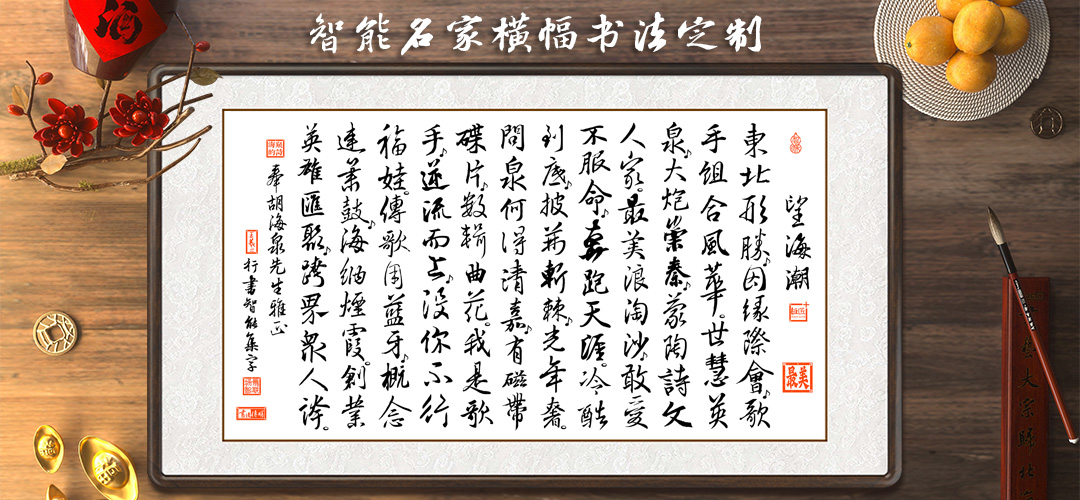 智能名家橫幅书法定制
望海潮
東北形勝因缘際會,歌
手組合風華。世慧英
泉,大炮崇秦,蒙陶詩文
人家。最美浪淘沙,敢愛
不服命,奔跑天涯。冷酷
到底,披荊斬棘光年奢。
問泉何得清嘉,有磁帶
碟片,数輯曲花。我是歌
手,逆流而上,没你不行
福娃。傳歌周藍牙,概念
達蕭鼓,海纳煙霞。創業
英雄匯聚,跨界眾人誇。
奉胡海泉先生雅正
行書智能集字
最美